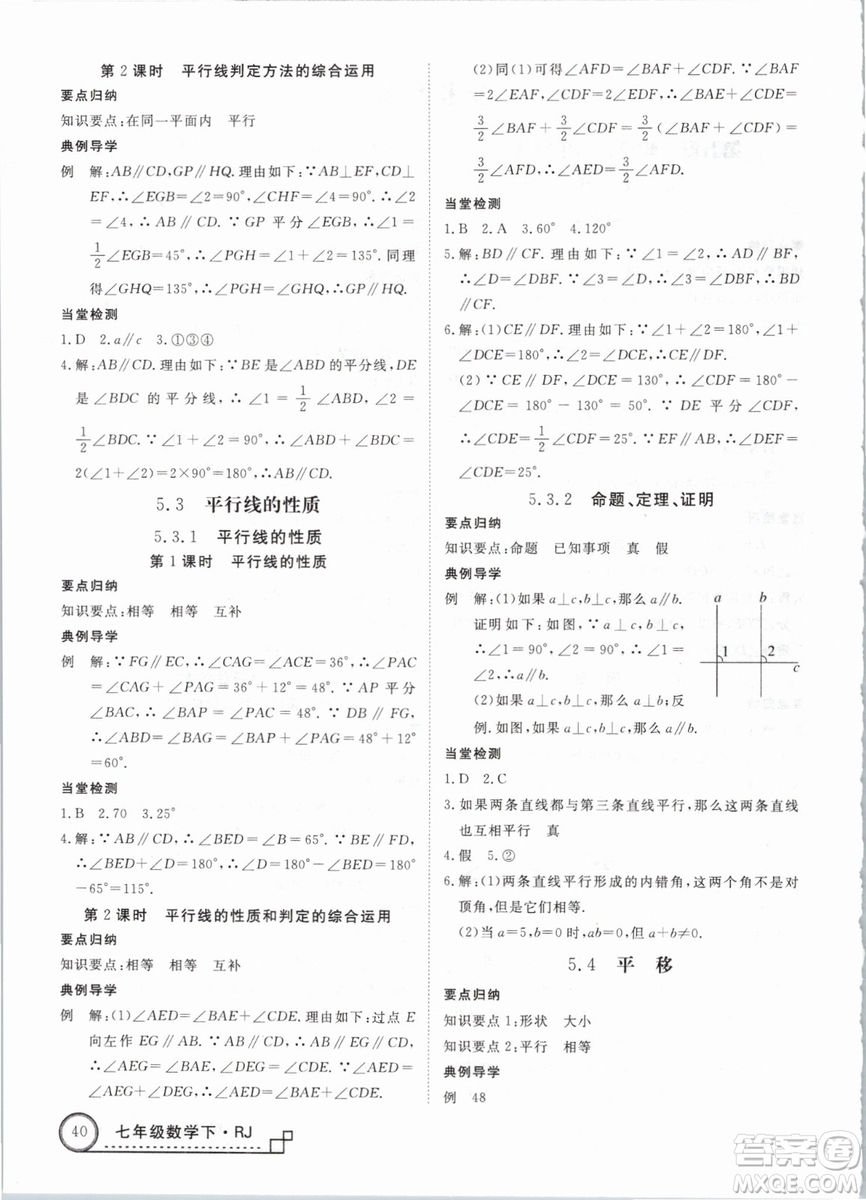 第2课时　平行线判定方法的综合运用
要点归纳
知识要点:在同一平面内　平行
典例导学
例　解:AB∥CD,GP∥HQ.理由如下:∵AB⊥EF,CD⊥
EF,∴∠EGB=∠2=90°,∠CHF=∠4=90°.∴∠2
=∠4,∴AB∥CD.∵GP平分∠EGB,∴∠1=
1/2∠EGB=45°,∴∠PGH=∠1+∠2=135°.同理
得∠GHQ=135°,∴∠PGH=∠GHQ,∴GP∥HQ.
当堂检测
1.D　2.a∥c　3.①③④
4.解:AB∥CD.理由如下:∵BE是∠ABD的平分线,DE
是∠BDC的平分线,∴∠1=1/2∠ABD,∠2=
1/2∠BDC.∵∠1+∠2=90°,∴∠ABD+∠BDC=
2(∠1+∠2)=2×90°=180°,∴AB∥CD.
5.3　平行线的性质
5.3.1　平行线的性质
第1课时　平行线的性质
要点归纳
知识要点:相等　相等　互补
典例导学
例　解:∵FG∥EC,∴∠CAG=∠ACE=36°,∴∠PAC
=∠CAG+∠PAG=36°+12°=48°.∵AP平分
∠BAC,∴∠BAP=∠PAC=48°.∵DB∥FG,
∴∠ABD=∠BAG=∠BAP+∠PAG=48°+12°
=60°.
当堂检测
1.B　2.70　3.25°
4.解:∵AB∥CD,∴∠BED=∠B=65°.∵BE∥DF,
∴∠BED+∠D=180°,∴∠D=180°-∠BED=180°
-65°=115°.
第2课时　平行线的性质和判定的综合运用
要点归纳
知识要点:相等　相等　互补
典例导学
例　解:(1)∠AED=∠BAE+∠CDE.理由如下:过点E
向左作EG∥AB.∵AB∥CD,∴AB∥CD∥EG,
∴∠AEG=∠BAE,∠DEG=∠CDE.∵∠AED=
∠AEG+∠DEG,∴∠AED=∠BAE+∠CDE.
(2)同(1)可得∠AFD=∠BAF+∠CDF.∵∠BAF
=2∠EAF,∠CDF=2∠EDF,∴∠BAE+∠CDE=
3/2∠BAF+3/2∠CDF=3/2(∠BAF+∠CDF)=
3/2∠AFD,∴∠AED=3/2∠AFD.
当堂检测
1.B　2.A　3.60°　4.120°
5.解:BD∥CF.理由如下:∵∠1=∠2,∴AD∥BF,
∴∠D=∠DBF.∵∠3=∠D,∴∠3=∠DBF,∴BD
∥CF.
6.解:(1)CE∥DF.理由如下:∵∠1+∠2=180°,∠1+
∠DCE=180°,∴∠2=∠DCE,∴CE∥DF.
(2)∵CE∥DF,∠DCE=130°,∴∠CDF=180°-
∠DCE=180°-130°=50°.∵DE平分∠CDF,
∴∠CDE=1/2∠CDF=25°.∵EF∥AB,∴∠DEF=
∠CDE=25°.
5.3.2　命题、定理、证明
要点归纳
知识要点:命题　已知事项　真　假
典例导学
例　解:(1)如果a⊥c,b⊥c,那么a∥b.
证明如下:如图,∵a⊥c,b⊥c,
∴∠1=90°,∠2=90°,∴∠1=
∠2,∴a∥b.
(2)如果a⊥c,b⊥c,那么a⊥b;反
例.如图,如果a⊥c,b⊥c,那么a∥b.
a
b
1
2
c
当堂检测
1.D　2.C
3.如果两条直线都与第三条直线平行,那么这两条直线
也互相平行　真
4.假　5.②
6.解:(1)两条直线平行形成的内错角,这两个角不是对
顶角,但是它们相等.
(2)当a=5,b=0时,ab=0,但a+b≠0.
5.4　平　移
要点归纳
知识要点1:形状　大小
知识要点2:平行　相等
典例导学
例　48
40
七年级数学下·RJ
答案圈
MXQE.COM